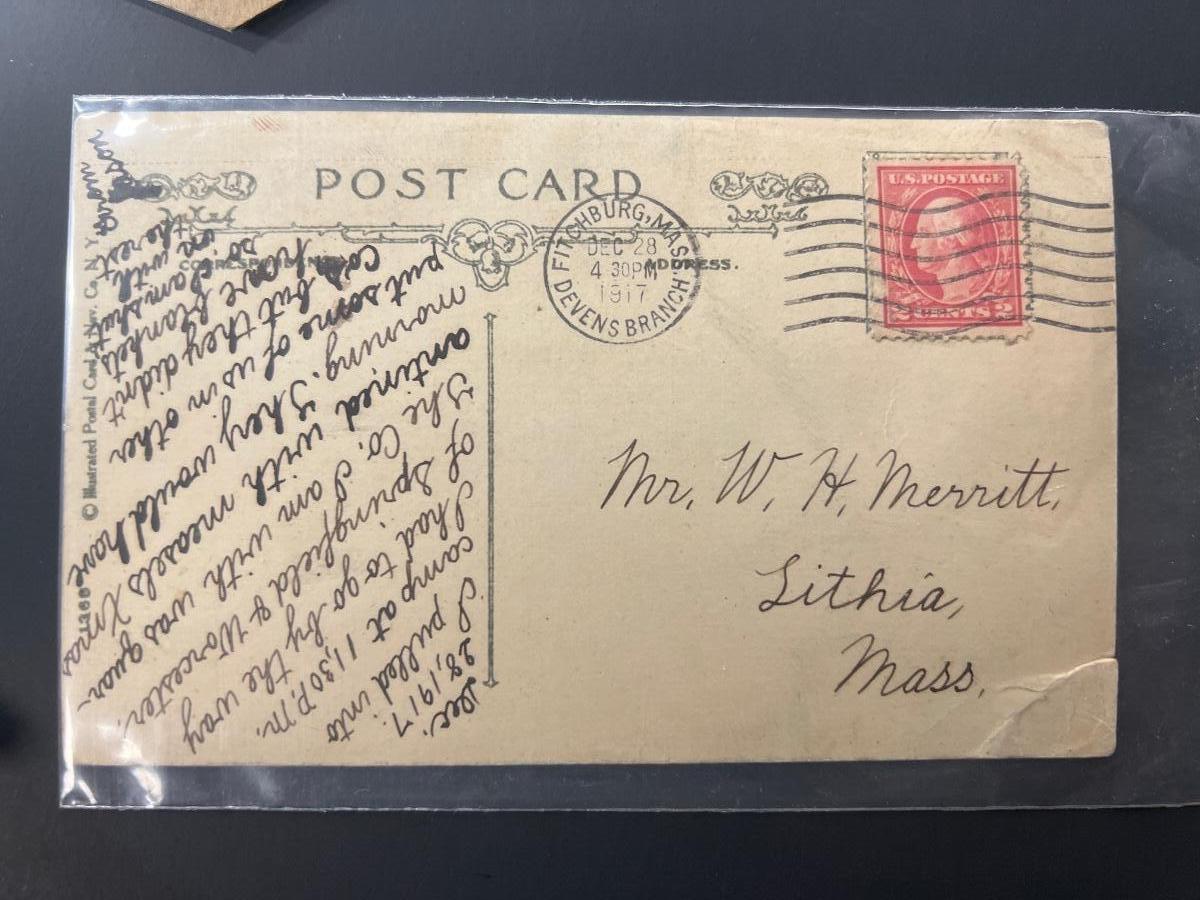 POST CARD
CORRESPONDENCE
ADDRESS.
FITCHBURG, MASS.
DEC 28
4 30PM
1917
DEVENS BRANCH
U.S. POSTAGE
2 CENTS 2
Mr. W. H. Merritt.
Lithia,
Mass.
Dec.
28, 1917.
I pulled into
camp at 11,30 P.M.
I had to go by the way
of Springfield & Worcester.
The Co. I am with was quar-
antined with measels Xmas
morning. They would have
put some of us in other
Co's but they didn't
have blankets
so I am shut
in with
the rest
© Illustrated Postal Card & Nov. Co., N.Y.